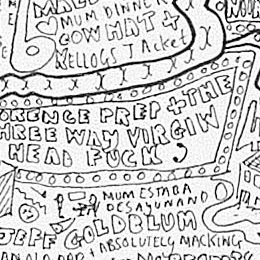 MUM DINNER
COW HAT +
KELLOGS JACKET
ORENCE PREP + THE
HREE WAY VIRGIN
HEAD FUCK ;
MUM ESTABA
DESAYUNANDO
JEFF GOLDBLUM
+ ABSOLUTELY MACKING